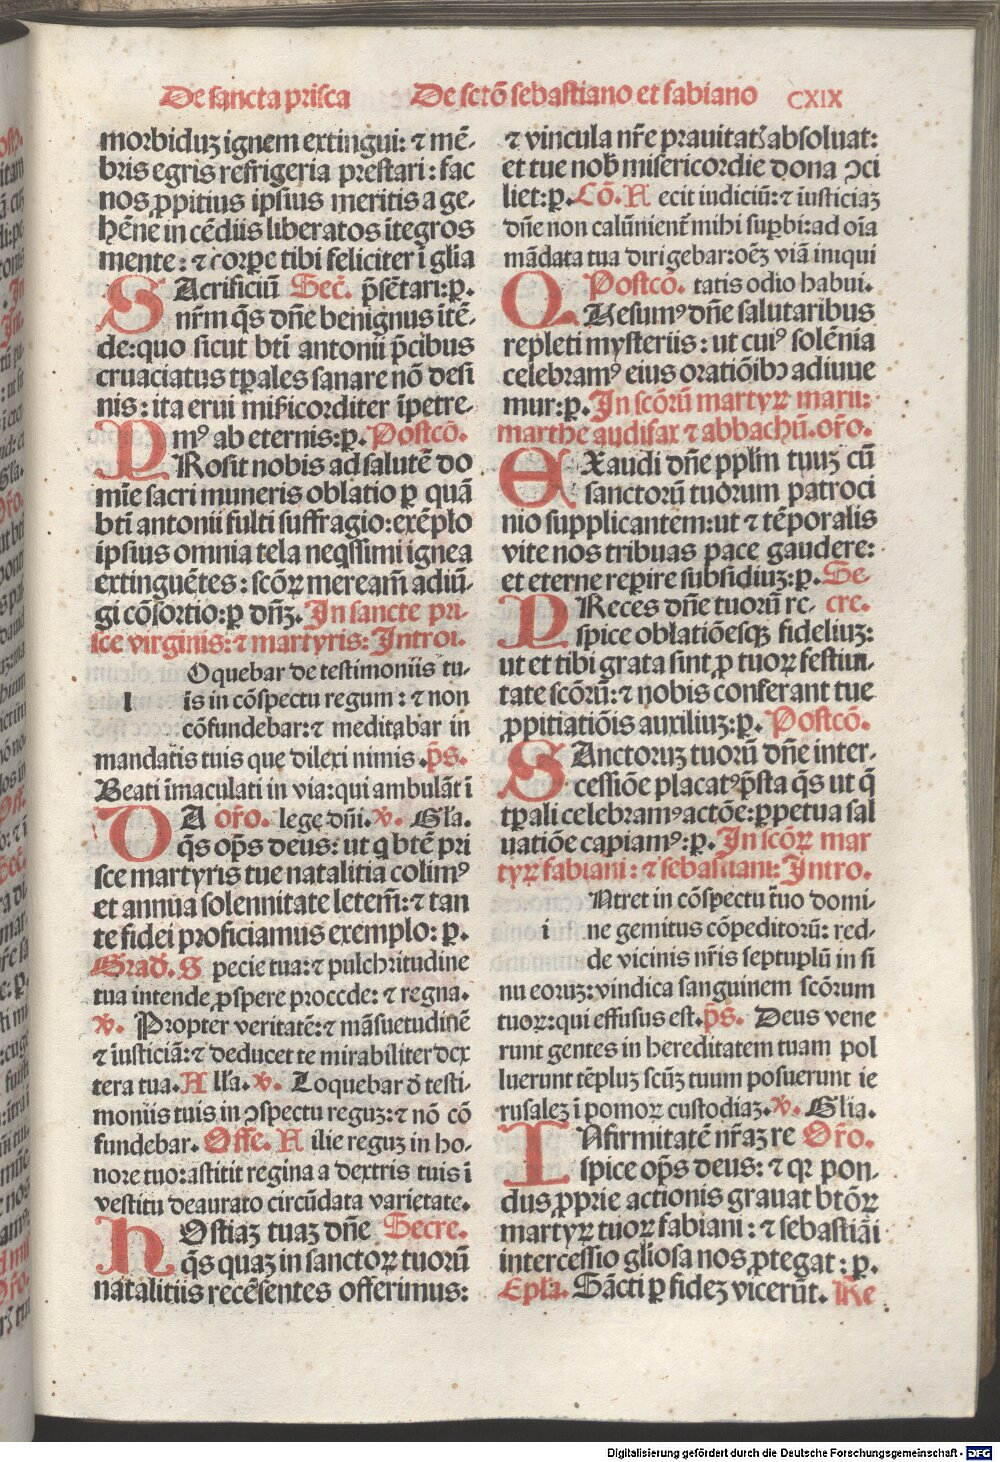 De sancta prisca
De sctō sebastiano et fabiano
CXIX
morbiduʒ ignem extingui: ⁊ mē-
bris egris refrigeria prestari: fac
nos ꝓpitius ipsius meritis a ge-
hēne in cēdiis liberatos ītegros
mente: ⁊ corꝑe tibi feliciter ī glīa
SAcrificiū Sec̄. p̄sētari:p.
nr̄m q̄s dn̄e benignus itē-
de:quo sicut bt̄i antonii p̄cibus
cruaciatus tꝑales sanare nō desi
nis: ita erui mīsicorditer īpetre-
mꝰ ab eternis:p. Postcō.
PRosit nobis ad salutē do
mīe sacri muneris oblatio ꝑ quā
bt̄i antonii fulti suffragio:exēplo
ipsius omnia tela neq̄ssimi ignea
extinguētes: scōꝝ meream̄ adiū-
gi cōsortio:ꝑ dn̄ʒ. In sancte pri-
sce virginis: ⁊ martyris: Introi.
lOquebar de testimoniis tu-
is in cōspectu regum: ⁊ non
cōfundebar:⁊ meditabar in
mandatis tuis que dilexi nimis. p̄s.
Beati īmaculati in via:qui ambulāt ī
DA or̄o. lege dn̄i. ℣. Gl̄a.
q̄s op̄s deus: ut q bt̄ē pri
sce martyris tue natalitia colimꝰ
et annua solennitate letem̄: ⁊ tan
te fidei proficiamus exemplo: p.
Grad̄. S pecie tua: ⁊ pulchritudine
tua intende ꝓspere procede: ⁊ regna.
℣. Propter veritatē: ⁊ māsuetudinē
⁊ iusticiā: ⁊ deducet te mirabiliter dex
tera tua. A ll̄a. ℣. Loquebar d̄ testi-
moniis tuis in ↄspectu reguʒ: ⁊ nō cō
fundebar. Offe. F ilie reguʒ in ho-
nore tuo: astitit regina a dextris tuis ī
vestitu deaurato circūdata varietate.
HOstiaʒ tuaʒ dn̄e Secre.
q̄s quaʒ in sanctoꝝ tuorū
natalitiis recēsentes offerimus:
⁊ vincula nr̄e prauitatꝭ absoluat:
et tue nob̄ misericordie dona ↄci
liet:p. Cō. F ecit iudiciū: ⁊ iusticiaʒ
dn̄e non calūnient̄ mihi suꝑbi: ad oīa
mādata tua dirigebar: oēʒ viā iniqui
Postcō. tatis odio habui.
QUesumꝰ dn̄e salutaribus
repleti mysteriis: ut cuiꝰ solēnia
celebramꝰ eius oratiōibꝫ adiuue
mur:p. In scōrū martyꝝ marii:
marthe audifax ⁊ abbachū. or̄o.
EXaudi dn̄e pplm̄ tuuʒ cū
sanctorū tuorum patroci
nio supplicantem: ut ⁊ tēporalis
vite nos tribuas pace gaudere:
et eterne reꝑire subsidiuʒ:p. Se-
PReces dn̄e tuorū re- cre.
spice oblatiōesqꝫ fideliuʒ:
ut et tibi grata sint ꝓ tuoꝝ festiui-
tate scōrū: ⁊ nobis conferant tue
ꝓpitiatiōis auxiliuʒ:p. Postcō.
SAnctoruʒ tuorū dn̄e inter-
cessiōe placatꝰ p̄sta q̄s ut q̄
tꝑali celebramꝰ actōe: ꝑpetua sal
uatiōe capiamꝰ:p. In scōꝝ mar
tyꝝ fabiani: ⁊ sebastiani: Intro.
iNtret in cōspectu tuo domi-
ne gemitus cōpeditorū: red-
de vicinis nr̄is septuplū in si
nu eoruʒ: vindica sanguinem scōrum
tuoꝝ: qui effusus est. p̄s. Deus vene
runt gentes in hereditatem tuam pol
luerunt tēpluʒ scūʒ tuum posuerunt ie
rusaleʒ ī pomoꝝ custodiaʒ. ℣. Glīa.
INfirmitatē nr̄aʒ re Or̄o.
spice op̄s deus: ⁊ qꝛ pon-
dus ꝓprie actionis grauat bt̄ōꝝ
martyꝝ tuoꝝ fabiani: ⁊ sebastiāi
intercessio gl̄iosa nos ꝓtegat: p.
Epl̄a. Sācti ꝑ fideʒ vicerūt. Re
Digitalisierung gefördert durch die Deutsche Forschungsgemeinschaft - DFG